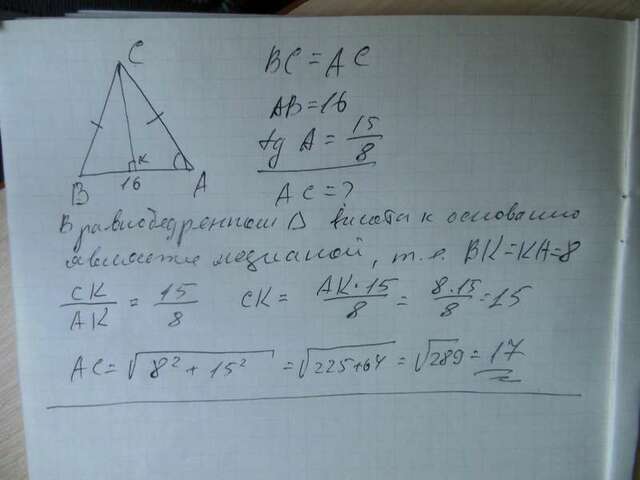 C
BC = AC
AB = 16
tg A = 15/8
K
B 16 A
AC = ?
В равнобедренном Δ висота к основанию
является медианой, т.е. BK=KA=8
CK/AK = 15/8 CK = AK·15/8 = 8·15/8 = 15
AC = √(8² + 15²) = √(225+64) = √289 = 17